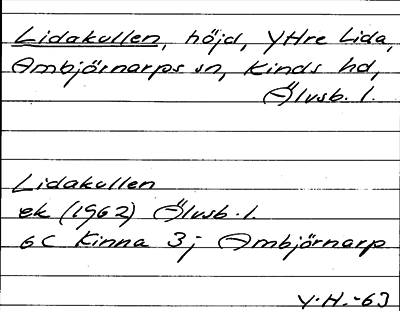 Lidakullen, höjd, Yttre Lida,
Ambjörnarps sn, Kinds hd,
Älvsb. l.
Lidakullen
ek (1962) Älvsb. l.
6C Kinna 3j Ambjörnarp
Y.H.-63